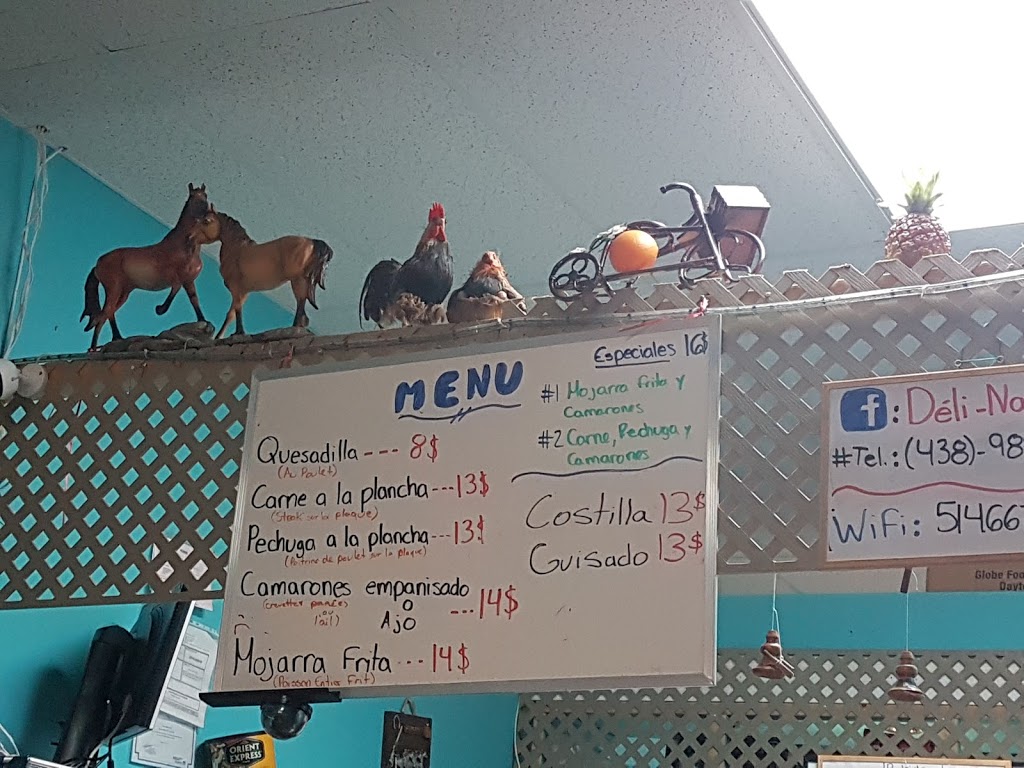 MENU
Quesadilla --- 8$
(Au Poulet)
Carne a la plancha --- 13$
(Steak sur la plaque)
Pechuga a la plancha --- 13$
(Poitrine de poulet sur la plaque)
Camarones empanisado
(crevettes panées
O
ou
l'ail)
Ajo
--- 14$
Mojarra Frita --- 14$
(Poisson Entier Frit)
Especiales 16$
#1 Mojarra frita y
Camarones
#2 Carne, Pechuga y
Camarones
Costilla 13$
Guisado 13$
f : Déli-No
#Tel.: (438)-98
WiFi: 51466
Globe Foo
Dayt
ORIENT
EXPRESS